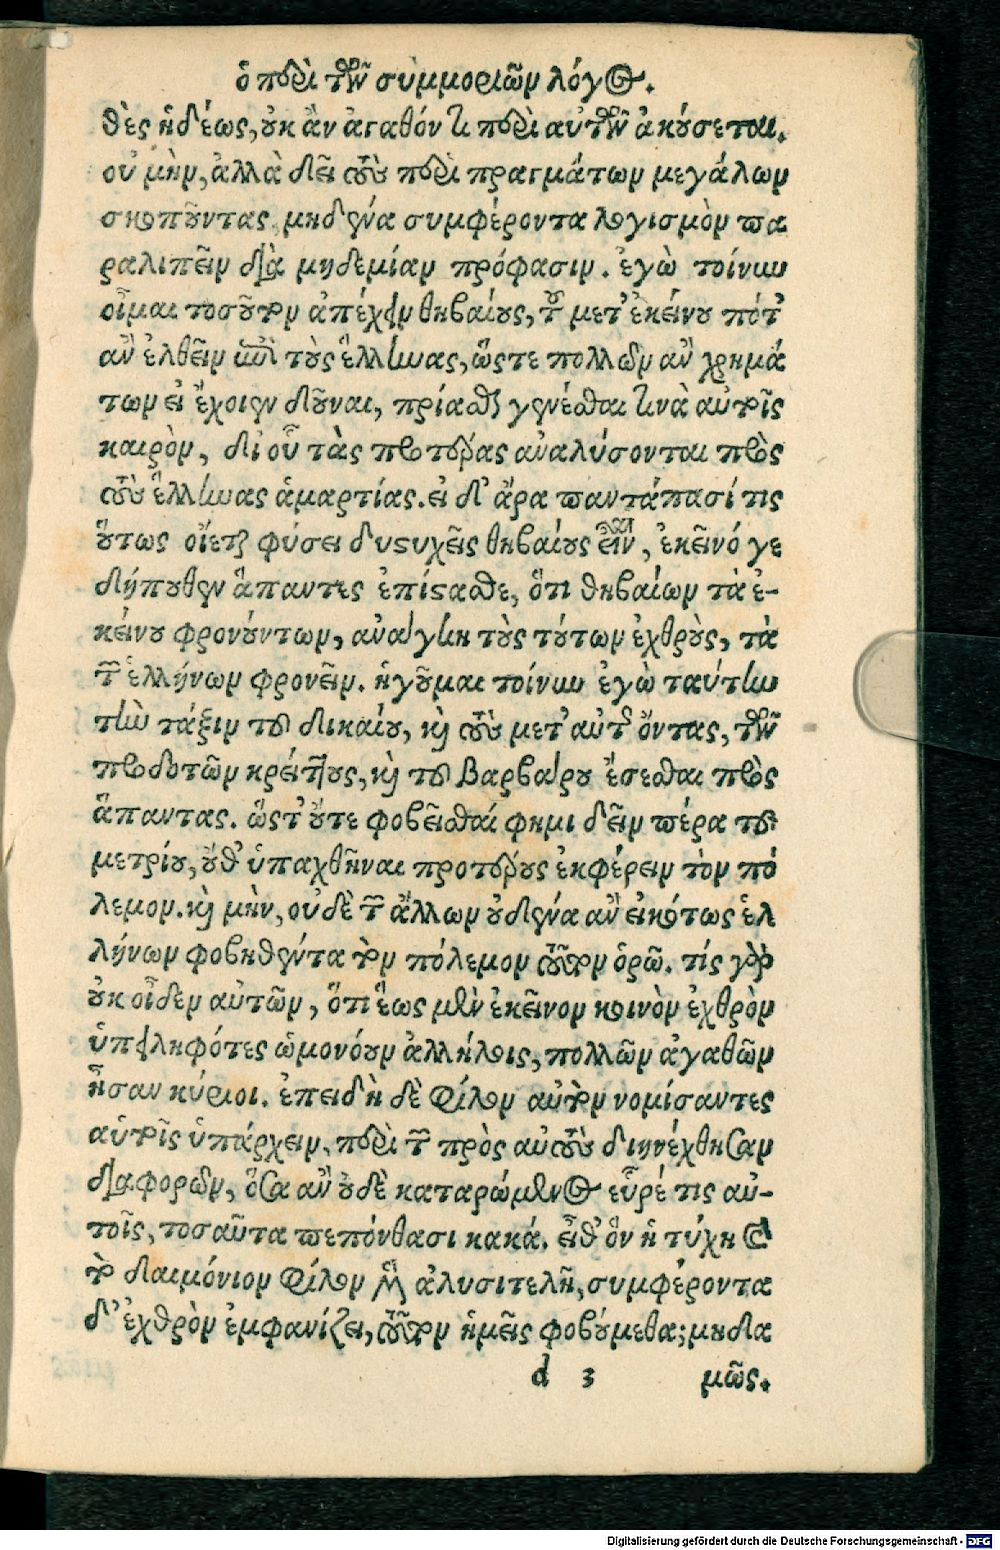 ὁ περὶ τῶν συμμοριῶν λόγος.
θὲς ἡδέως, οὐκ ἂν ἀγαθόν τι περὶ αὐτῶν ἀκούσεται.
οὐ μὴν, ἀλλὰ δεῖ τοὺς περὶ πραγμάτων μεγάλων
σκοποῦντας, μηδένα συμφέροντα λογισμὸν πα
ραλιπεῖν διὰ μηδεμίαν πρόφασιν. ἐγὼ τοίνυν
οἶμαι τοσοῦτον ἀπέχειν θηβαίους, τοῦ μετ' ἐκείνου πότ'
ἂν ἐλθεῖν ἐπὶ τοὺς ἕλληνας, ὥστε πολλῶν ἂν χρημά
των εἰ ἔχοιεν δοῦναι, πρίασθαι γενέσθαι τινὰ αὐτοῖς
καιρὸν, δι' οὗ τὰς προτέρας ἀναλύσονται πρὸς
τοὺς ἕλληνας ἁμαρτίας. εἰ δ' ἄρα παντάπασί τις
οὕτως οἴεται φύσει δυστυχεῖς θηβαίους εἶναι, ἐκεῖνό γε
δήπουθεν ἅπαντες ἐπίστασθε, ὅτι θηβαίων τὰ ἐ-
κείνου φρονούντων, ἀνάγκη τοὺς τούτων ἐχθροὺς, τὰ
τῶν ἑλλήνων φρονεῖν. ἡγοῦμαι τοίνυν ἐγὼ ταύτην
τὴν τάξιν τοῦ δικαίου, καὶ τοὺς μετ' αὐτῆς ὄντας, τῶν
προδοτῶν κρείττους, καὶ τοῦ βαρβάρου ἔσεσθαι πρὸς
ἅπαντας. ὥστ' οὔτε φοβεῖσθαί φημι δεῖν πέρα τοῦ
μετρίου, οὔθ' ὑπαχθῆναι προτέρους ἐκφέρειν τὸν πό
λεμον. καὶ μὴν, οὐδὲ τῶν ἄλλων οὐδένα ἂν εἰκότως ἑλ
λήνων φοβηθέντα τὸν πόλεμον τοῦτον ὁρῶ. τίς γὰρ
οὐκ οἶδεν αὐτῶν, ὅτι ἕως μὲν ἐκεῖνον κοινὸν ἐχθρὸν
ὑπειληφότες ὡμονόουν ἀλλήλοις, πολλῶν ἀγαθῶν
ἦσαν κύριοι. ἐπειδὴ δὲ φίλον αὐτὸν νομίσαντες
αὑτοῖς ὑπάρχειν, περὶ τῶν πρὸς αὑτοὺς διηνέχθησαν
διαφορῶν, ὅσα ἂν οὐδὲ καταρώμενος εὗρέ τις αὐ-
τοῖς, τοσαῦτα πεπόνθασι κακά. εἶθ' ὃν ἡ τύχη καὶ
τὸ δαιμόνιον φίλον μὲν ἀλυσιτελῆ, συμφέροντα
δ' ἐχθρὸν ἐμφανίζει, τοῦτον ἡμεῖς φοβούμεθα; μηδα
d 3 μῶς.
Digitalisierung gefördert durch die Deutsche Forschungsgemeinschaft - DFG